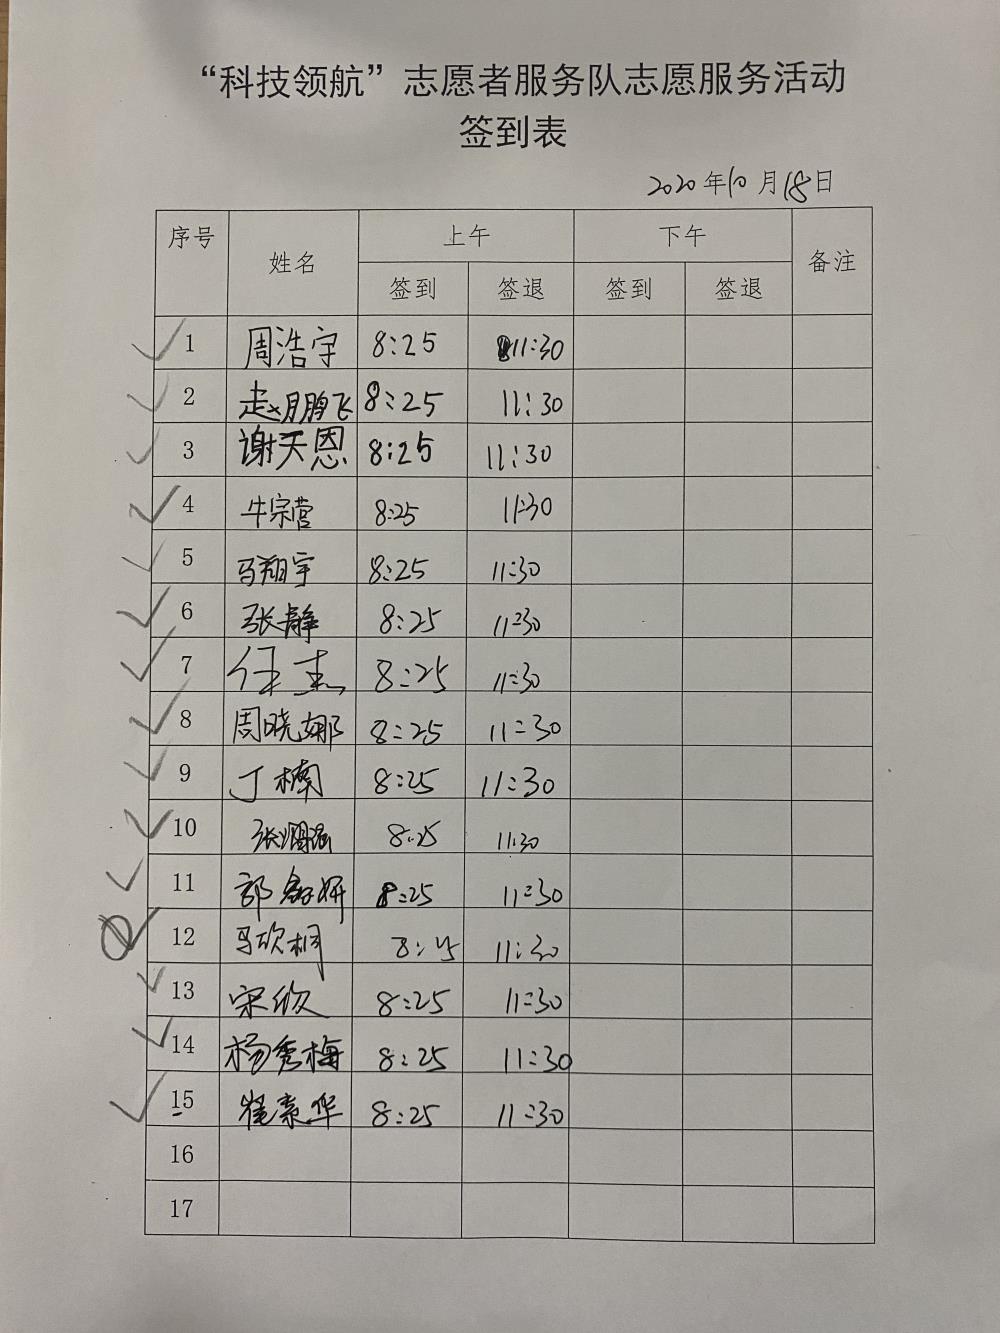 “科技领航”志愿者服务队志愿服务活动
签到表
2020年10月18日
序号 姓名 上午 下午 备注
签到 签退 签到 签退
1 周浩宇 8:25 11:30
2 赵鹏飞 8:25 11:30
3 谢天恩 8:25 11:30
4 牛宗营 8:25 11:30
5 马翔宇 8:25 11:30
6 张静 8:25 11:30
7 任杰 8:25 11:30
8 周晓娜 8:25 11:30
9 丁楠 8:25 11:30
10 张 8:25 11:30
11 郭 妍 8:25 11:30
12 马欣桐 8:25 11:30
13 宋欣 8:25 11:30
14 杨秀梅 8:25 11:30
15 崔素华 8:25 11:30
16
17